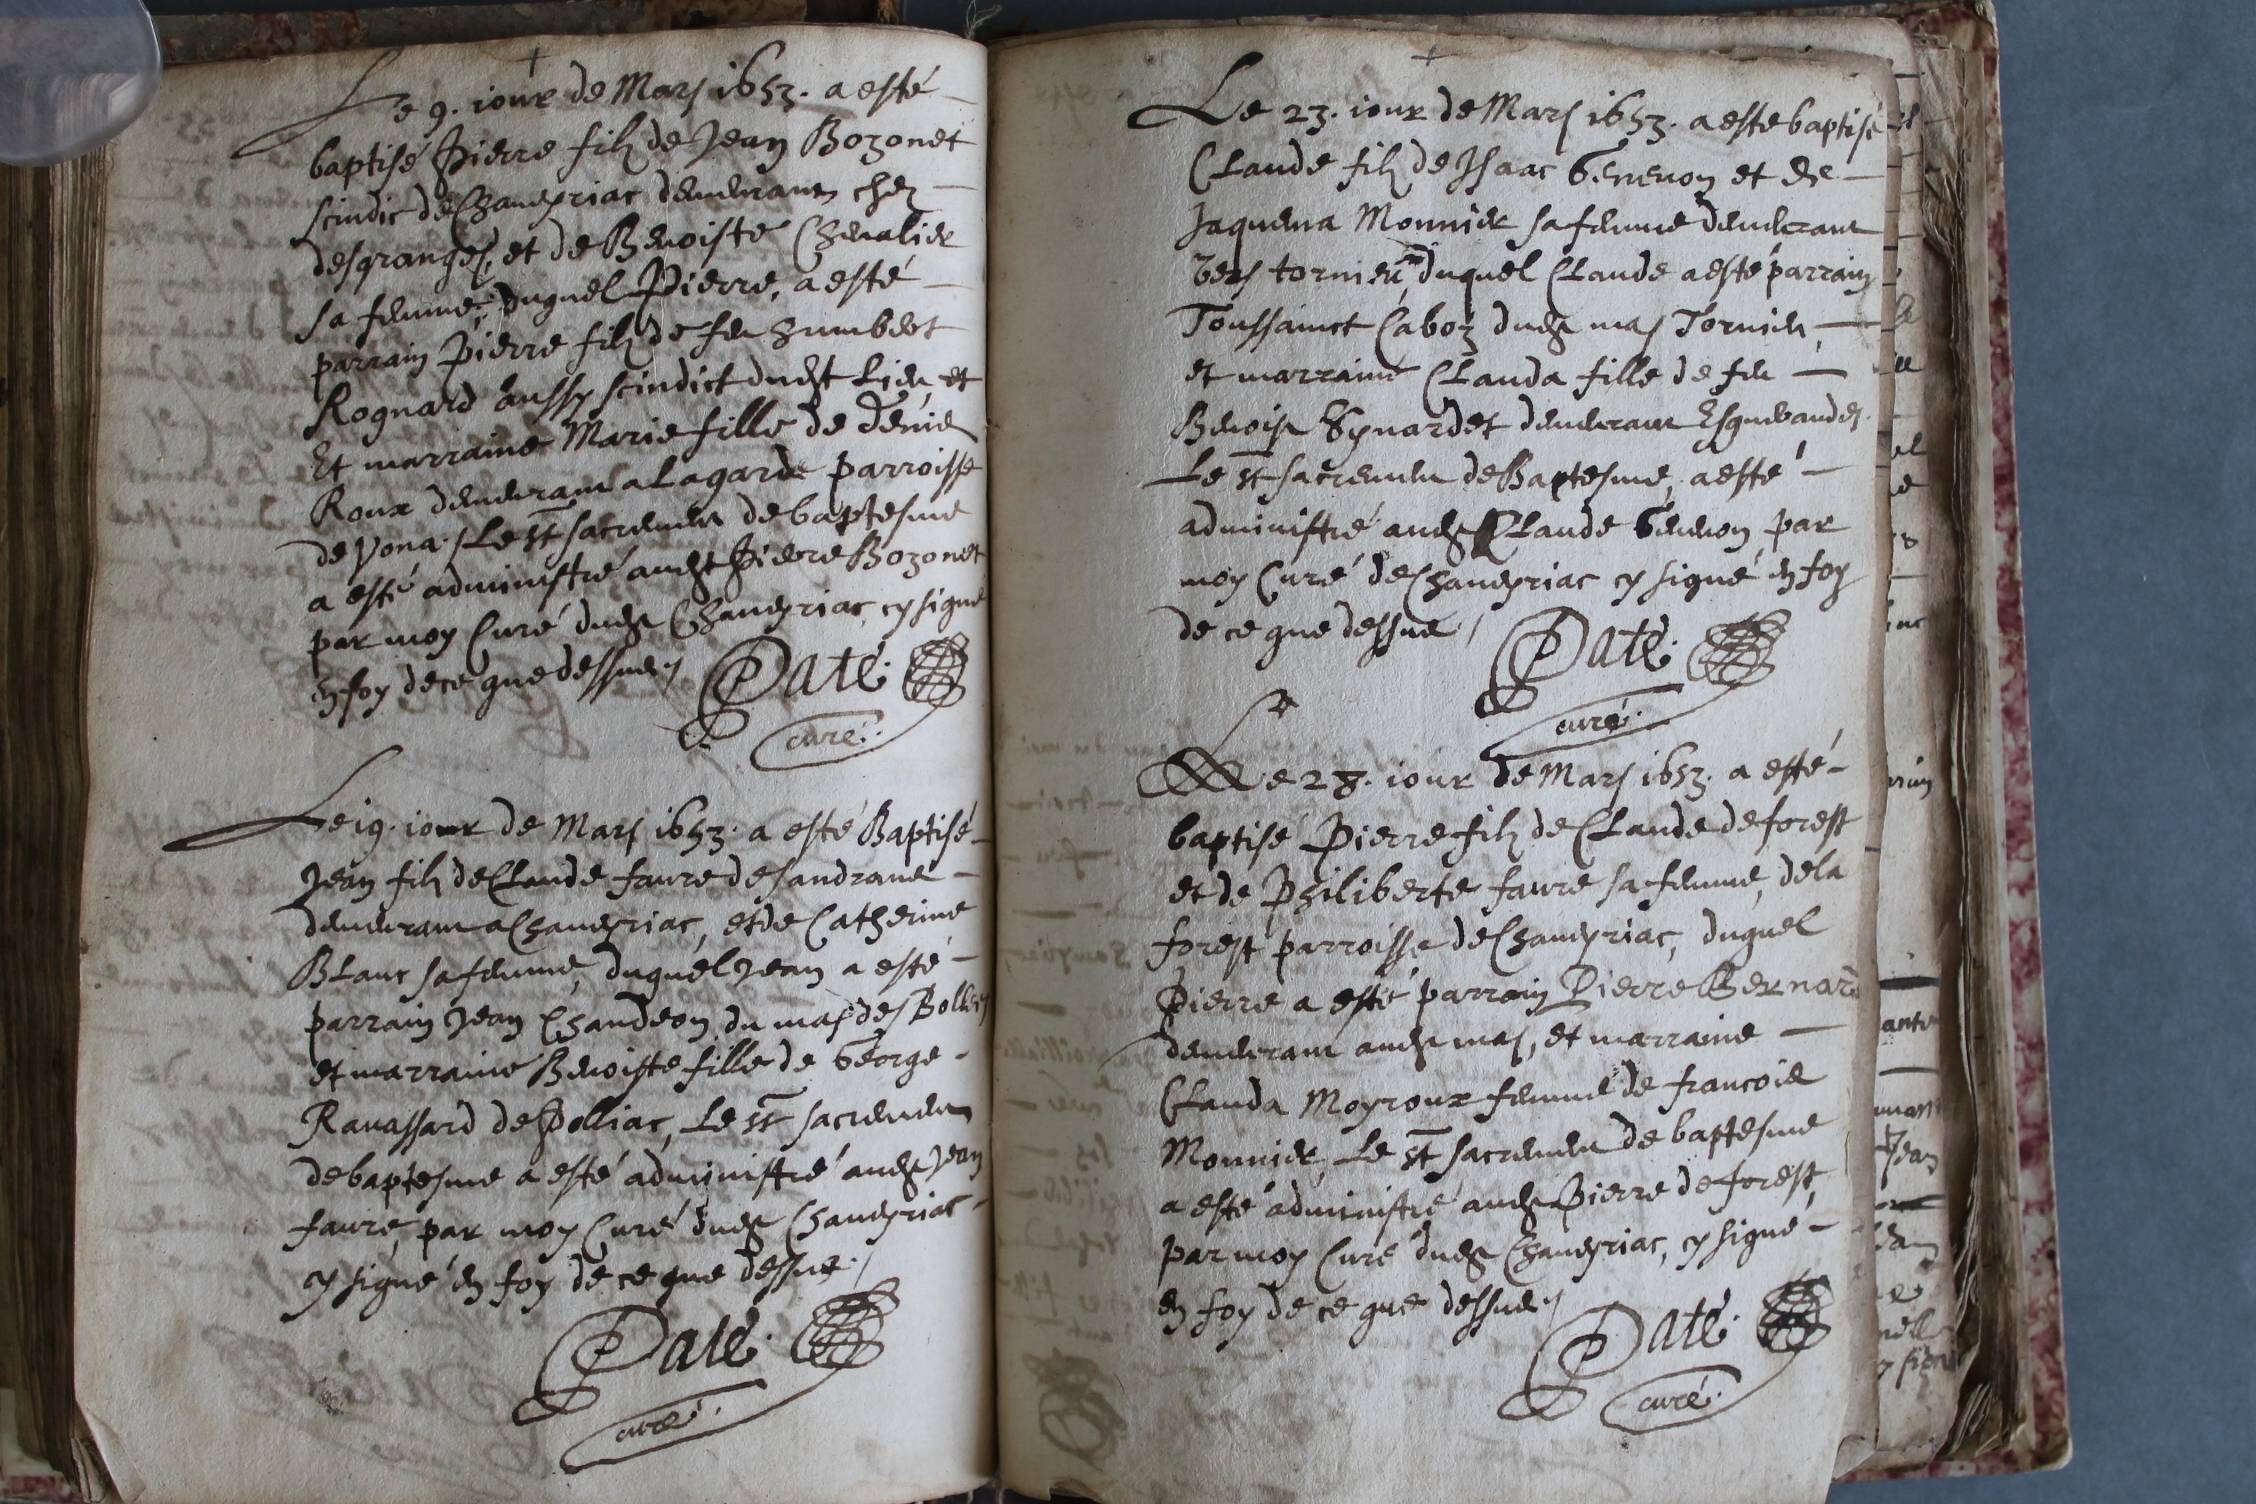 Le 9. jour de Mars 1653. a esté
baptisé Pierre filz de Jean Bozonet
scindic de Chaveyriac demeurant chez
desgranges, et de Benoiste Chevalier
sa femme, duquel Pierre, a esté
parrain Pierre filz de feu humbert
Rognard aussy scindict dudit Lieu, et
Et marraine Marie fille de Denis
Roux demeurant a Lagarde parroisse
de Vona. / Le st sacrement de baptesme
a esté administré audit Pierre Bozonet
par moy Curé dudit Chaveyriac, cy signé
en foy de ce que dessus /
Paté.
curé.
Le 19. jour de Mars 1653. a esté Baptisé
Jean filz de Claude faure desandrane
demeurant a Chaveyriac, et de Catherine
Blanc sa femme, duquel Jean a esté
parrain Jean Chandeon du mas des
et marraine Benoiste fille de George
Ravassard de Polliac, Le st sacrement
de baptesme a esté administré audit Jean
faure, par moy Curé dudit Chaveyriac
cy signé en foy de ce que dessus. /
Paté.
curé.
Le 23. jour de Mars 1653. a esté baptisé
Claude filz de Isaac Genevon et de
Jaquema Monnier sa femme demeurant
vers tornier, duquel Claude a esté parrain
Toussainct Caboz dudit mas Tornier,
et marraine Clauda fille de feu
Benoist demeurant
Le st sacrement de Baptesme, a esté
administré audit Claude Genevon par
moy Curé de Chaveyriac cy signé en foy
de ce que dessus /
Paté.
curé.
Le 28. jour de Mars 1653. a esté
baptisé Pierre filz de Claude deforest
et de Philiberte faure sa femme, de la
forest parroisse de Chaveyriac, duquel
Pierre a esté parrain Pierre Bernard
demeurant audit mas, et marraine
Clauda Moyroux femme de francois
Monnier, Le st sacrement de baptesme
a esté administré audit Pierre deforest,
par moy Curé dudit Chaveyriac, cy signé
en foy de ce que dessus /
Paté.
curé.